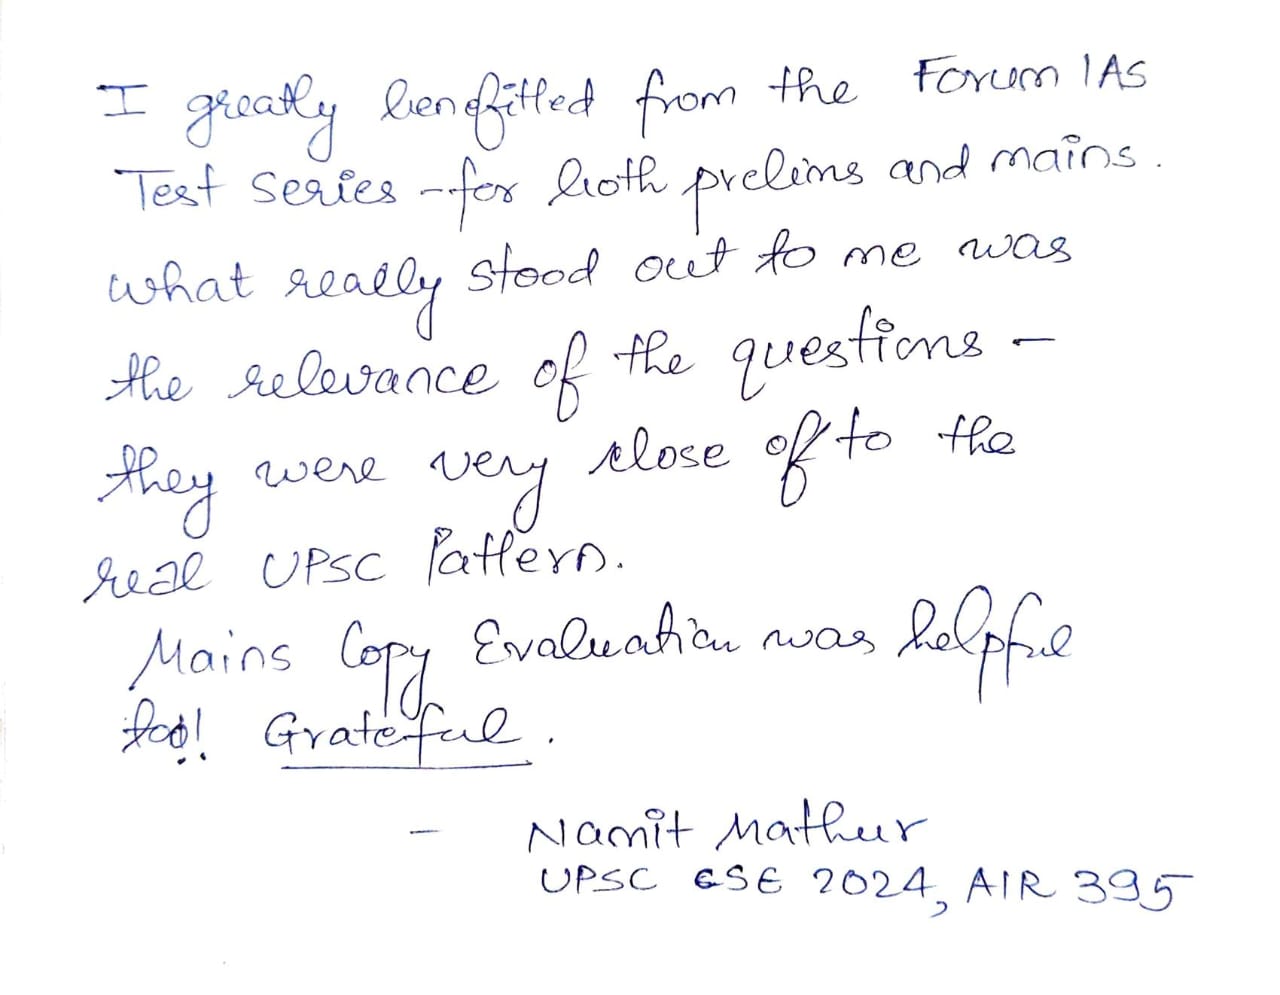 I greatly benefitted from the Forum IAS
Test Series - for both prelims and mains.
What really stood out to me was
the relevance of the questions -
they were very close of to the
real UPSC Pattern.
Mains Copy Evaluation was helpful
too! Grateful.
- Namit Mathur
UPSC CSE 2024, AIR 395